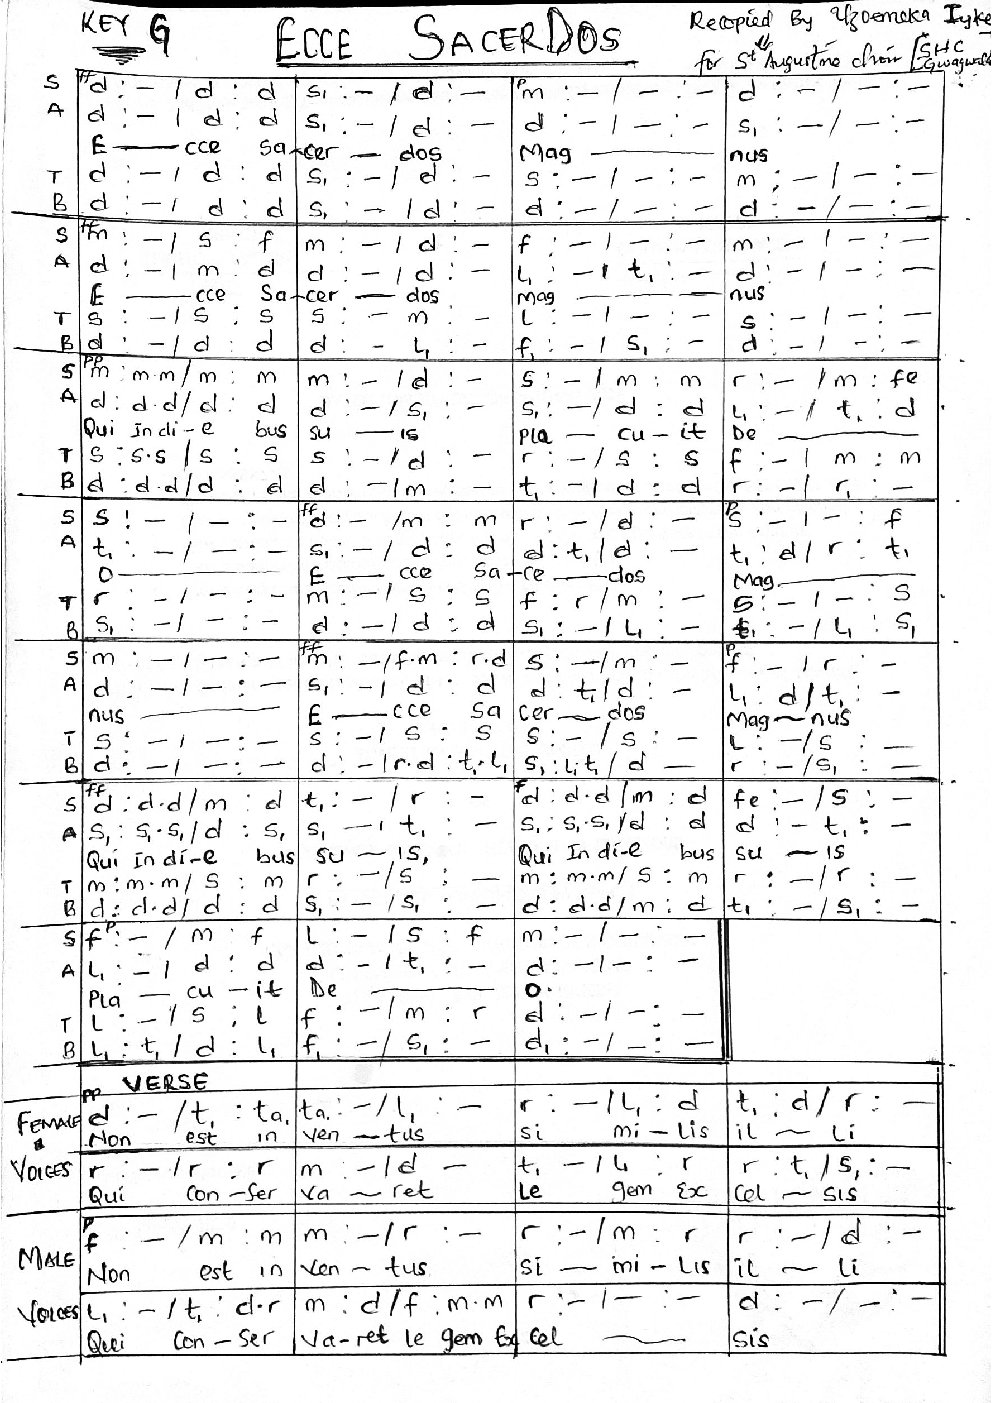 KEY G ECCE SACERDOS Recopied By Uzoemeka Iyke
for St Augustine choir SHC
S ff d : – / d : d | s₁ : – / d : – | p m : – / – : – | d : – / – : –
A d : – / d : d | s₁ : – / d : – | d : – / – : – | s₁ : – / – : –
E — cce Sa-cer — dos Mag — nus
T d : – / d : d | s₁ : – / d : – | s : – / – : – | m : – / – : –
B d : – / d : d | s₁ : – / d : – | d : – / – : – | d : – / – : –
S ff m : – / s : f | m : – / d : – | f : – / – : – | m : – / – : –
A d : – / m : d | d : – / d : – | l₁ : – / t₁ : – | d : – / – : –
E — cce Sa-cer — dos Mag — nus
T s : – / s : s | s : – m : – | l : – / – : – | s : – / – : –
B d : – / d : d | d : – l₁ : – | f₁ : – / s₁ : – | d : – / – : –
S pp m : m.m / m : m | m : – / d : – | s : – / m : m | r : – / m : fe
A d : d.d / d : d | d : – / s₁ : – | s₁ : – / d : d | l₁ : – / t₁ : d
Qui In di-e bus su — is Pla — cu-it De —
T s : s.s / s : s | s : – / d : – | r : – / s : s | f : – / m : m
B d : d.d / d : d | d : – / m : – | t₁ : – / d : d | r : – / r₁ : –
S s : – / – : – | ff d : – / m : m | r : – / d : – | p s : – / – : f
A t₁ : – / – : – | s₁ : – / d : d | d : t₁ / d : – | t₁ : d / r : t₁
O — E — cce Sa-ce — dos Mag —
T r : – / – : – | m : – / s : s | f : r / m : – | s : – / – : s
B s₁ : – / – : – | d : – / d : d | s₁ : – / l₁ : – | : – / l₁ : s₁
S m : – / – : – | ff m : – / f.m : r.d | s : – / m : – | p f : – / r : –
A d : – / – : – | s₁ : – / d : d | d : t₁ / d : – | l₁ : d / t₁ : –
nus — E — cce Sa cer — dos Mag ~ nus
T s : – / – : – | s : – / s : s | s : – / s : – | l : – / s : –
B d : – / – : – | d : – / r.d : t₁.l₁ | s₁ : l₁t₁ / d – | r : – / s₁ : –
S ff d : d.d / m : d | t₁ : – / r : – | f d : d.d / m : d | fe : – / s : –
A s₁ : s₁.s₁ / d : s₁ | s₁ – t₁ : – | s₁ : s₁.s₁ / d : d | d : – t₁ : –
Qui In di-e bus su — is, Qui In di-e bus su — is
T m : m.m / s : m | r : – / s : – | m : m.m / s : m | r : – / r : –
B d : d.d / d : d | s₁ : – / s₁ : – | d : d.d / m : d | t₁ : – / s₁ : –
S f p : – / m : f | l : – / s : f | m : – / – : –
A l₁ : – / d : d | d : – / t₁ : – | d : – / – : –
Pla — cu — it De — O.
T l : – / s : l | f : – / m : r | d : – / – : –
B l₁ : t₁ / d : l₁ | f₁ : – / s₁ : – | d₁ : – / – : –
VERSE
FEMALE & pp d : – / t₁ : ta₁ | ta₁ : – / l₁ : – | r : – / l₁ : d | t₁ : d / r : –
Non est in ven — tus si mi – lis il ~ li
VOICES r : – / r : r | m – / d – | t₁ – / l₁ : r | r : t₁ / s₁ : –
Qui con – ser va ~ ret le gem Ex cel ~ sis
MALE p f : – / m : m | m : – / r : – | r : – / m : r | r : – / d : –
Non est in ven ~ tus si ~ mi – lis il ~ li
VOICES l₁ : – / t₁ : d.r | m : d / f : m.m | r : – / – : – | d : – / – : –
Qui con – ser va-ret le gem Ex cel ~ sis